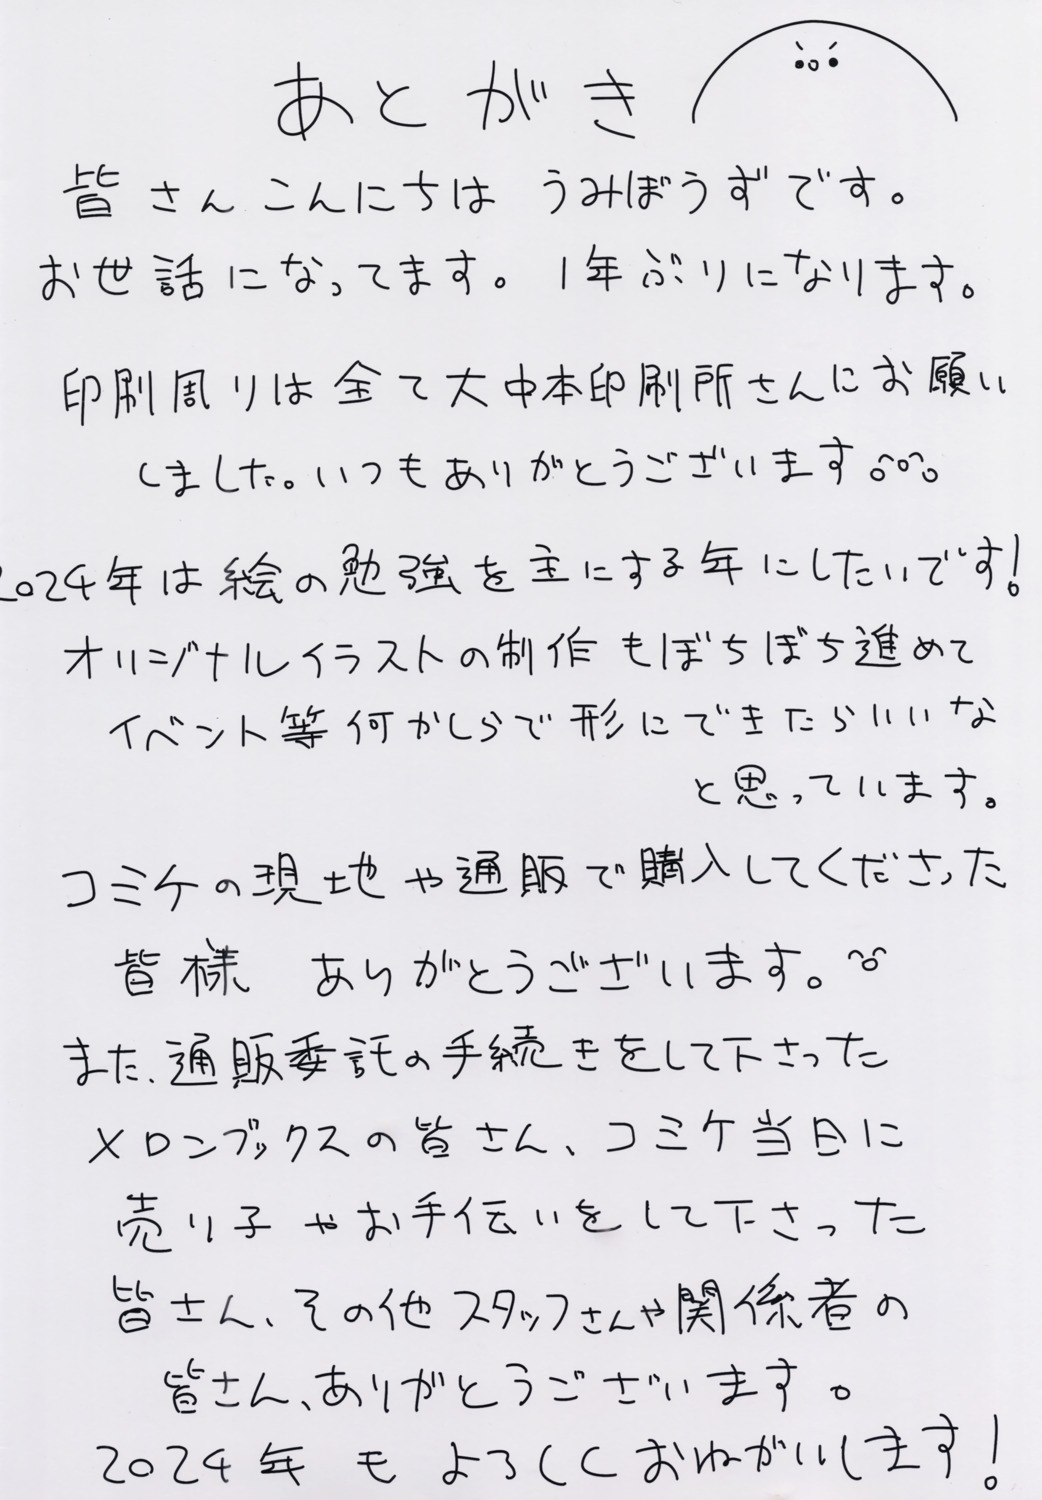 あとがき
皆さんこんにちは うみぼうずです。
お世話になってます。1年ぶりになります。
印刷周りは全て大中本印刷所さんにお願い
しました。いつもありがとうございます
2024年は絵の勉強を主にする年にしたいです!
オリジナルイラストの制作もぼちぼち進めて
イベント等何かしらで形にできたらいいな
と思っています。
コミケの現地や通販で購入してくださった
皆様 ありがとうございます。
また、通販委託の手続きをして下さった
メロンブックスの皆さん、コミケ当日に
売り子やお手伝いをして下さった
皆さん、その他スタッフさんや関係者の
皆さん、ありがとうございます。
2024年もよろしくおねがいします!